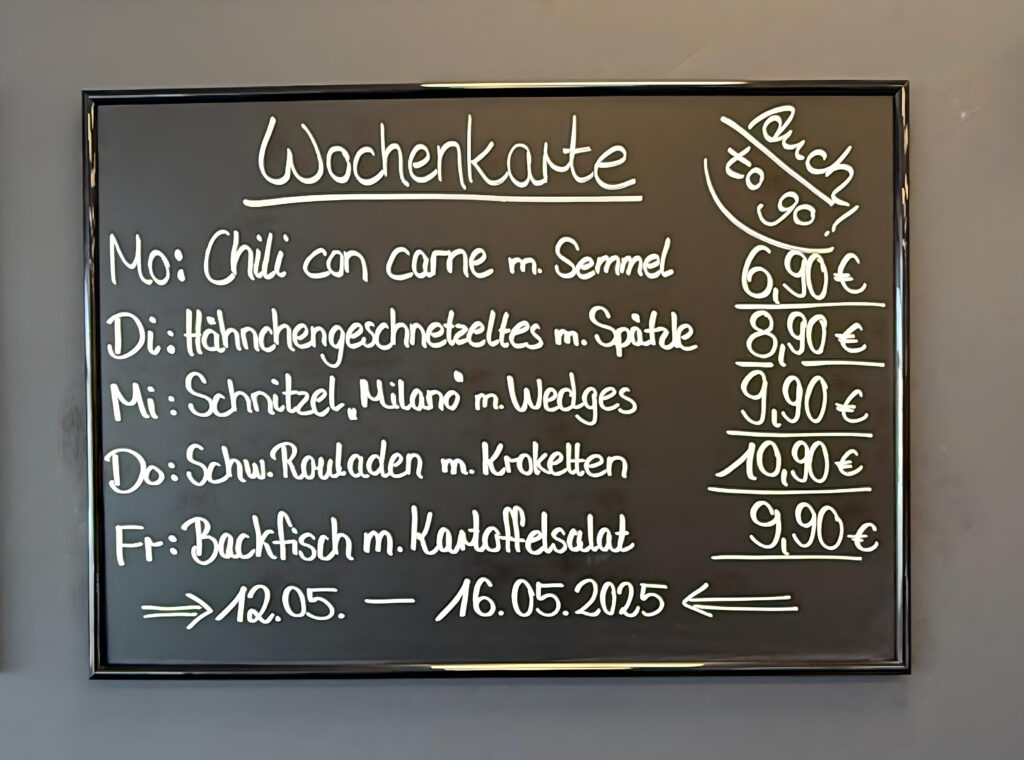 Wochenkarte
auch
to go!
Mo: Chili con carne m. Semmel 6,90 €
Di: Hähnchengeschnetzeltes m. Spätzle 8,90 €
Mi: Schnitzel „Milano“ m. Wedges 9,90 €
Do: Schw. Rouladen m. Kroketten 10,90 €
Fr: Backfisch m. Kartoffelsalat 9,90 €
⇒ 12.05. — 16.05.2025 ⇐